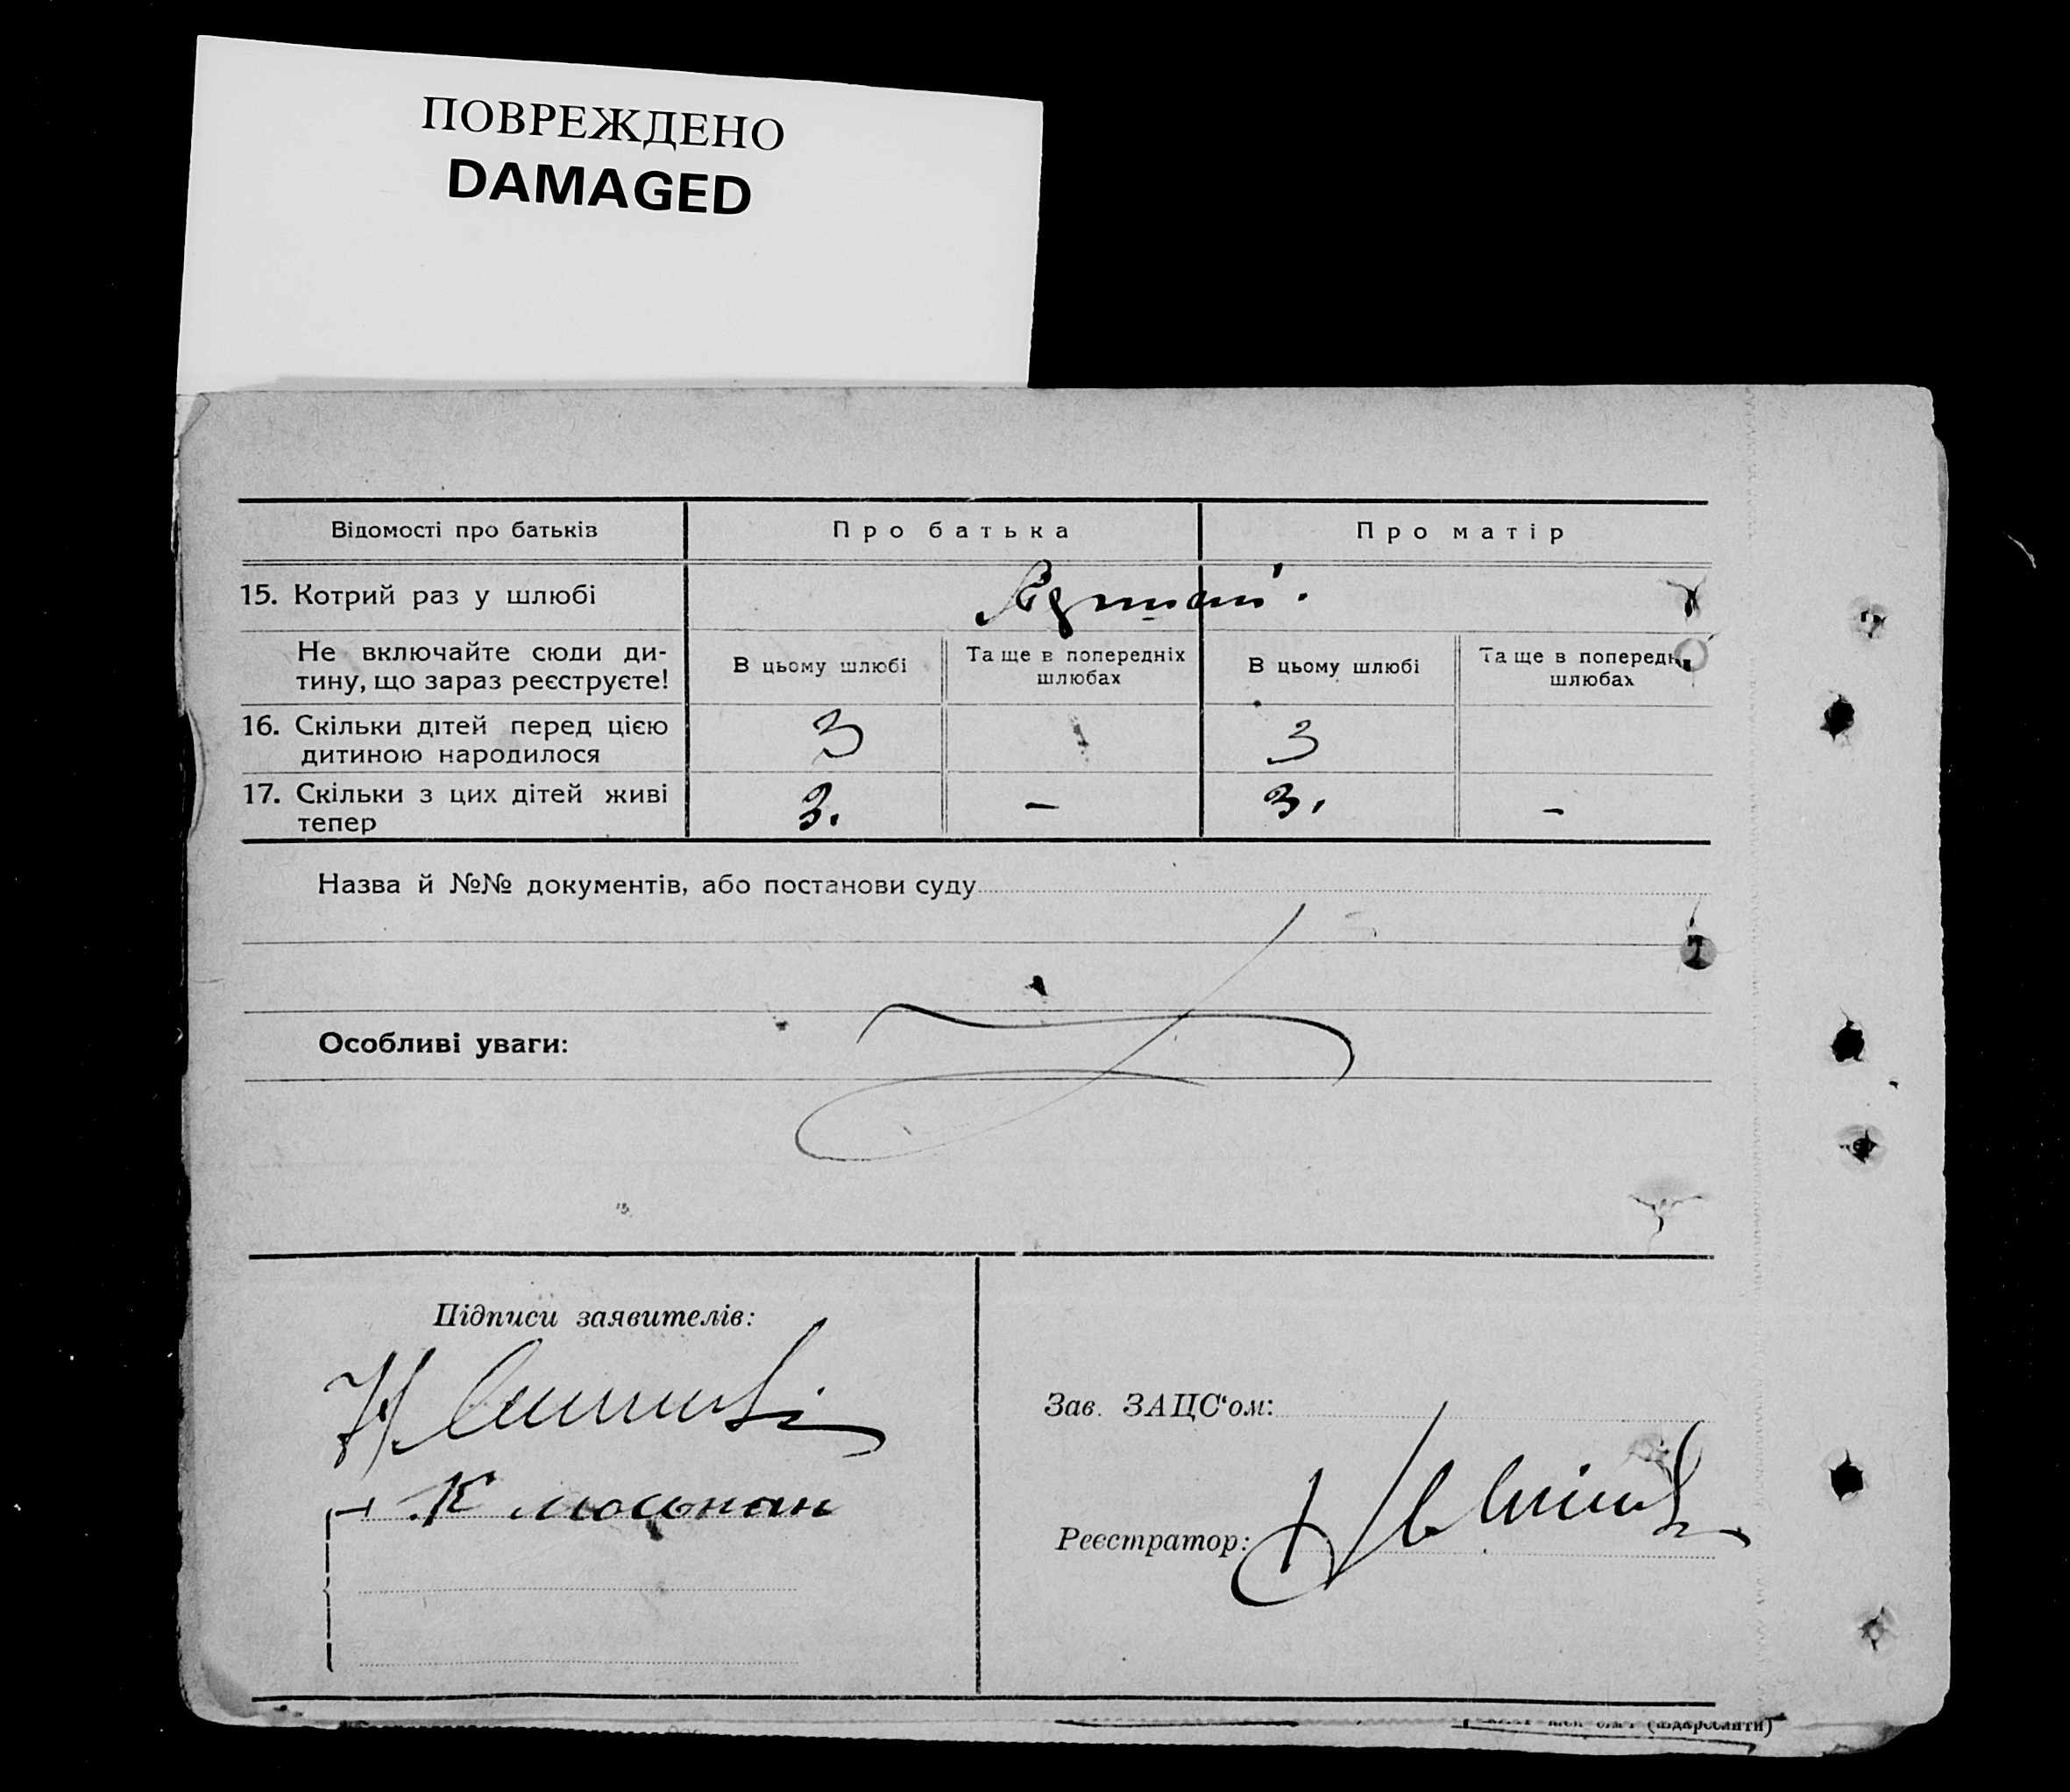 ПОВРЕЖДЕНО
DAMAGED
Відомості про батьків
Про батька
Про матір
15. Котрий раз у шлюбі
Не включайте сюди ди-
тину, що зараз реєструєте!
В цьому шлюбі
Та ще в попередніх
шлюбах
В цьому шлюбі
Та ще в поперед
шлюбах
16. Скільки дітей перед цією
дитиною народилося
3
3
17. Скільки з цих дітей живі
тепер
3. – 3. –
Назва й №№ документів, або постанови суду
Особливі уваги:
Підписи заявителів:
К
Зав. ЗАЦС‘ом:
Реєстратор: